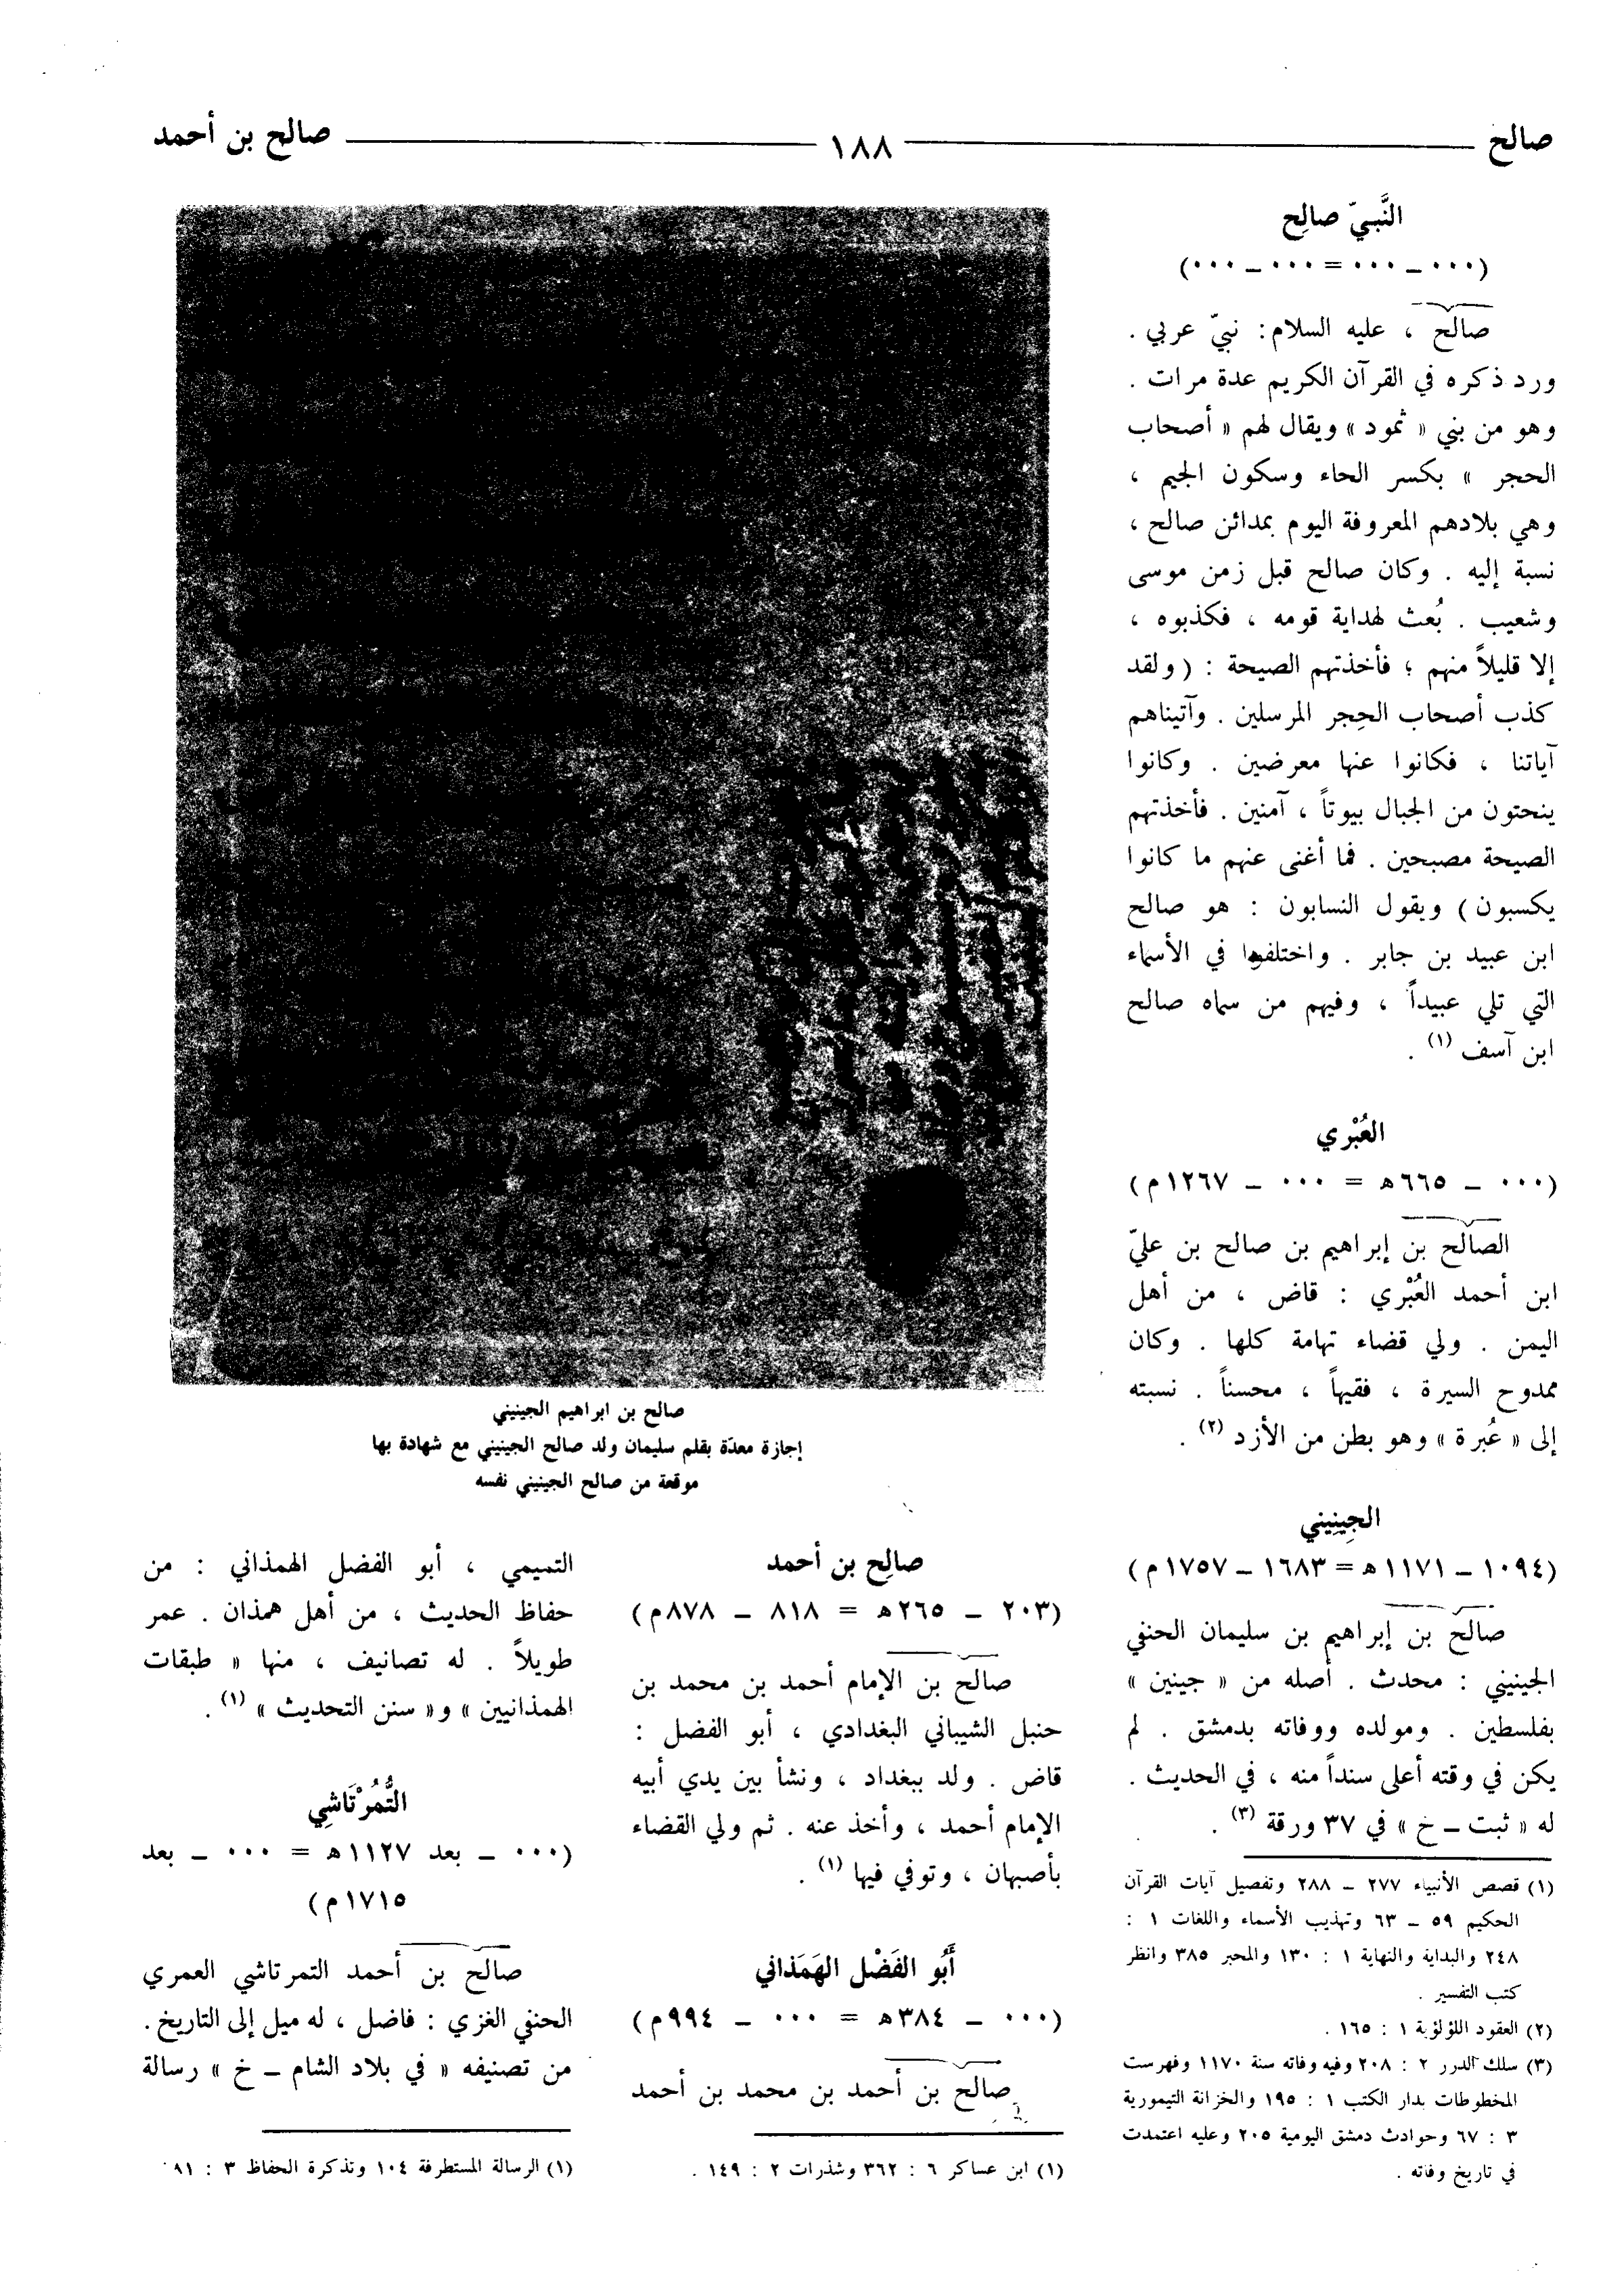 صالح ١٨٨ صالح بن أحمد
النَّبيّ صالِح
(٠٠٠ ـ ٠٠٠ = ٠٠٠ ـ ٠٠٠)
صالح ، عليه السلام : نبيّ عربي .
ورد ذكره في القرآن الكريم عدة مرات .
وهو من بني « ثمود » ويقال لهم « أصحاب
الحجر » بكسر الحاء وسكون الجيم ،
وهي بلادهم المعروفة اليوم بمدائن صالح ،
نسبة إليه . وكان صالح قبل زمن موسى
وشعيب . بُعث لهداية قومه ، فكذبوه ،
إلا قليلاً منهم ؛ فأخذتهم الصيحة : ( ولقد
كذب أصحاب الحِجر المرسلين . وآتيناهم
آياتنا ، فكانوا عنها معرضين . وكانوا
ينحتون من الجبال بيوتاً ، آمنين . فأخذتهم
الصيحة مصبحين . فما أغنى عنهم ما كانوا
يكسبون ) ويقول النسابون : هو صالح
ابن عبيد بن جابر . واختلفوا في الأسماء
التي تلي عبيداً ، وفيهم من سماه صالح
ابن آسف (١) .
العُبْري
(٠٠٠ ـ ٦٦٥هـ = ٠٠٠ ـ ١٢٦٧م)
الصالح بن إبراهيم بن صالح بن عليّ
ابن أحمد العُبْري : قاض ، من أهل
اليمن . ولي قضاء تهامة كلها . وكان
ممدوح السيرة ، فقيهاً ، محسناً . نسبته
إلى « عُبرة » وهو بطن من الأزد (٢) .
الجِينِيني
(١٠٩٤ ـ ١١٧١هـ = ١٦٨٣ ـ ١٧٥٧م)
صالح بن إبراهيم بن سليمان الحنفي
الجينيني : محدث . أصله من « جينين »
بفلسطين . ومولده ووفاته بدمشق . لم
يكن في وقته أعلى سنداً منه ، في الحديث .
له « ثبت ـ خ » في ٣٧ ورقة (٣) .
(١) قصص الأنبياء ٢٧٧ ـ ٢٨٨ وتفصيل آيات القرآن
الحكيم ٥٩ ـ ٦٣ وتهذيب الأسماء واللغات ١ :
٢٤٨ والبداية والنهاية ١ : ١٣٠ والمحبر ٣٨٥ وانظر
كتب التفسير .
(٢) العقود اللؤلؤية ١ : ١٦٥ .
(٣) سلك الدرر ٢ : ٢٠٨ وفيه وفاته سنة ١١٧٠ وفهرست
المخطوطات بدار الكتب ١ : ١٩٥ والخزانة التيمورية
٣ : ٦٧ وحوادث دمشق اليومية ٢٠٥ وعليه اعتمدت
في تاريخ وفاته .
صالح بن ابراهيم الجينيني
إجازة معدّة بقلم سليمان ولد صالح الجينيني مع شهادة بها
موقعة من صالح الجينيني نفسه
صالِح بن أحمد
(٢٠٣ ـ ٢٦٥هـ = ٨١٨ ـ ٨٧٨م)
صالح بن الإمام أحمد بن محمد بن
حنبل الشيباني البغدادي ، أبو الفضل :
قاض . ولد ببغداد ، ونشأ بين يدي أبيه
الإمام أحمد ، وأخذ عنه . ثم ولي القضاء
بأصبهان ، وتوفي فيها (١) .
أَبُو الفَضْل الهَمَذاني
(٠٠٠ ـ ٣٨٤هـ = ٠٠٠ ـ ٩٩٤م)
صالح بن أحمد بن محمد بن أحمد
(١) ابن عساكر ٦ : ٣٦٢ وشذرات ٢ : ١٤٩ .
التميمي ، أبو الفضل الهمذاني : من
حفاظ الحديث ، من أهل همذان . عمر
طويلاً . له تصانيف ، منها « طبقات
الهمذانيين » و« سنن التحديث » (١) .
التُّمُرْتَاشِي
(٠٠٠ ـ بعد ١١٢٧هـ = ٠٠٠ ـ بعد
١٧١٥م)
صالح بن أحمد التمرتاشي العمري
الحنفي الغزي : فاضل ، له ميل إلى التاريخ .
من تصنيفه « في بلاد الشام ـ خ » رسالة
(١) الرسالة المستطرفة ١٠٤ وتذكرة الحفاظ ٣ : ١٨١